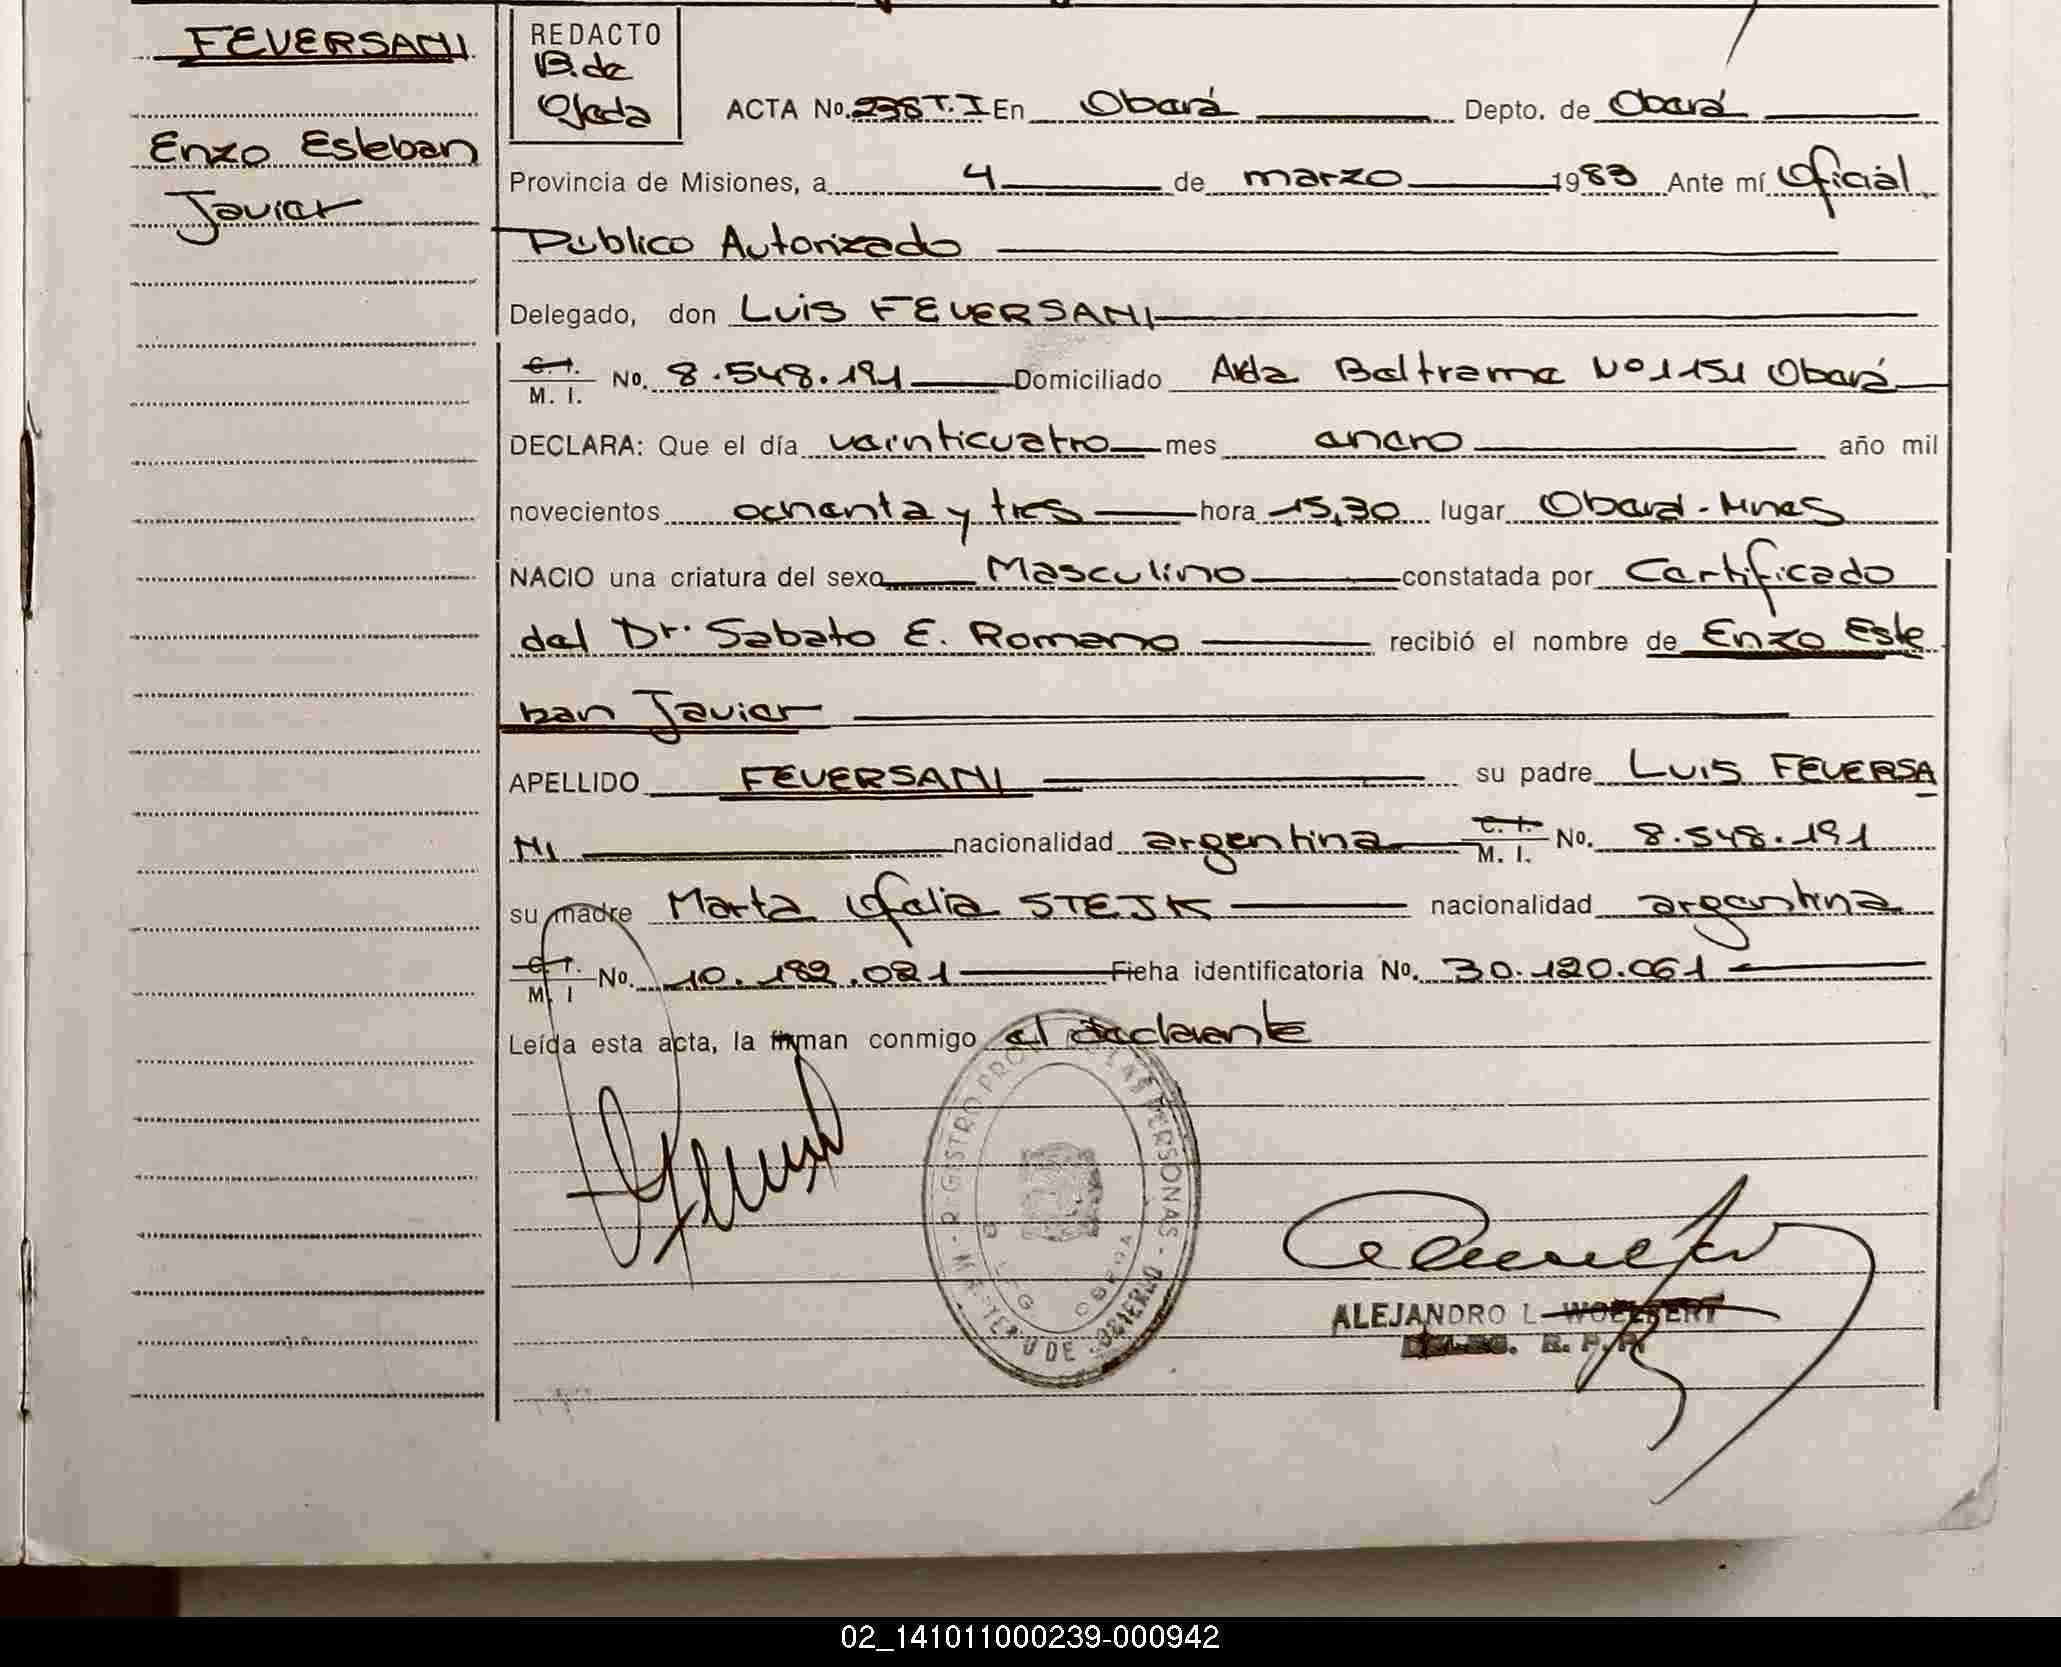 FEVERSANI
Enzo Esteban
Javier
REDACTO
B. de
Ojeda
ACTA No. 238 T. I En Oberá Depto. de Oberá
Provincia de Misiones, a 4 de marzo 1983 Ante mí Oficial
Publico Autorizado
Delegado, don Luis FEVERSANI
C. I.
M. I. No. 8.548.191 Domiciliado Avda Beltrame Nº 1151 Oberá
DECLARA: Que el día veinticuatro mes enero año mil
novecientos ochenta y tres hora 15,30 lugar Oberá - Mnes
NACIO una criatura del sexo Masculino constatada por Certificado
del Dr. Sabato E. Romano recibió el nombre de Enzo Este
ban Javier
APELLIDO FEVERSANI su padre Luis FEVERSA
NI nacionalidad argentina C. I.
M. I. No. 8.548.191
su madre Marta Ofelia STEJK nacionalidad argentina
C. I.
M. I No. 10.182.021 Ficha identificatoria No. 30.120.061
Leída esta acta, la firman conmigo el declarante
REGISTRO PROV DE LAS PERSONAS - MINISTERIO DE GOBIERNO
ALEJANDRO L. WOELFERT
DELEG. R. P. P.
02_141011000239-000942